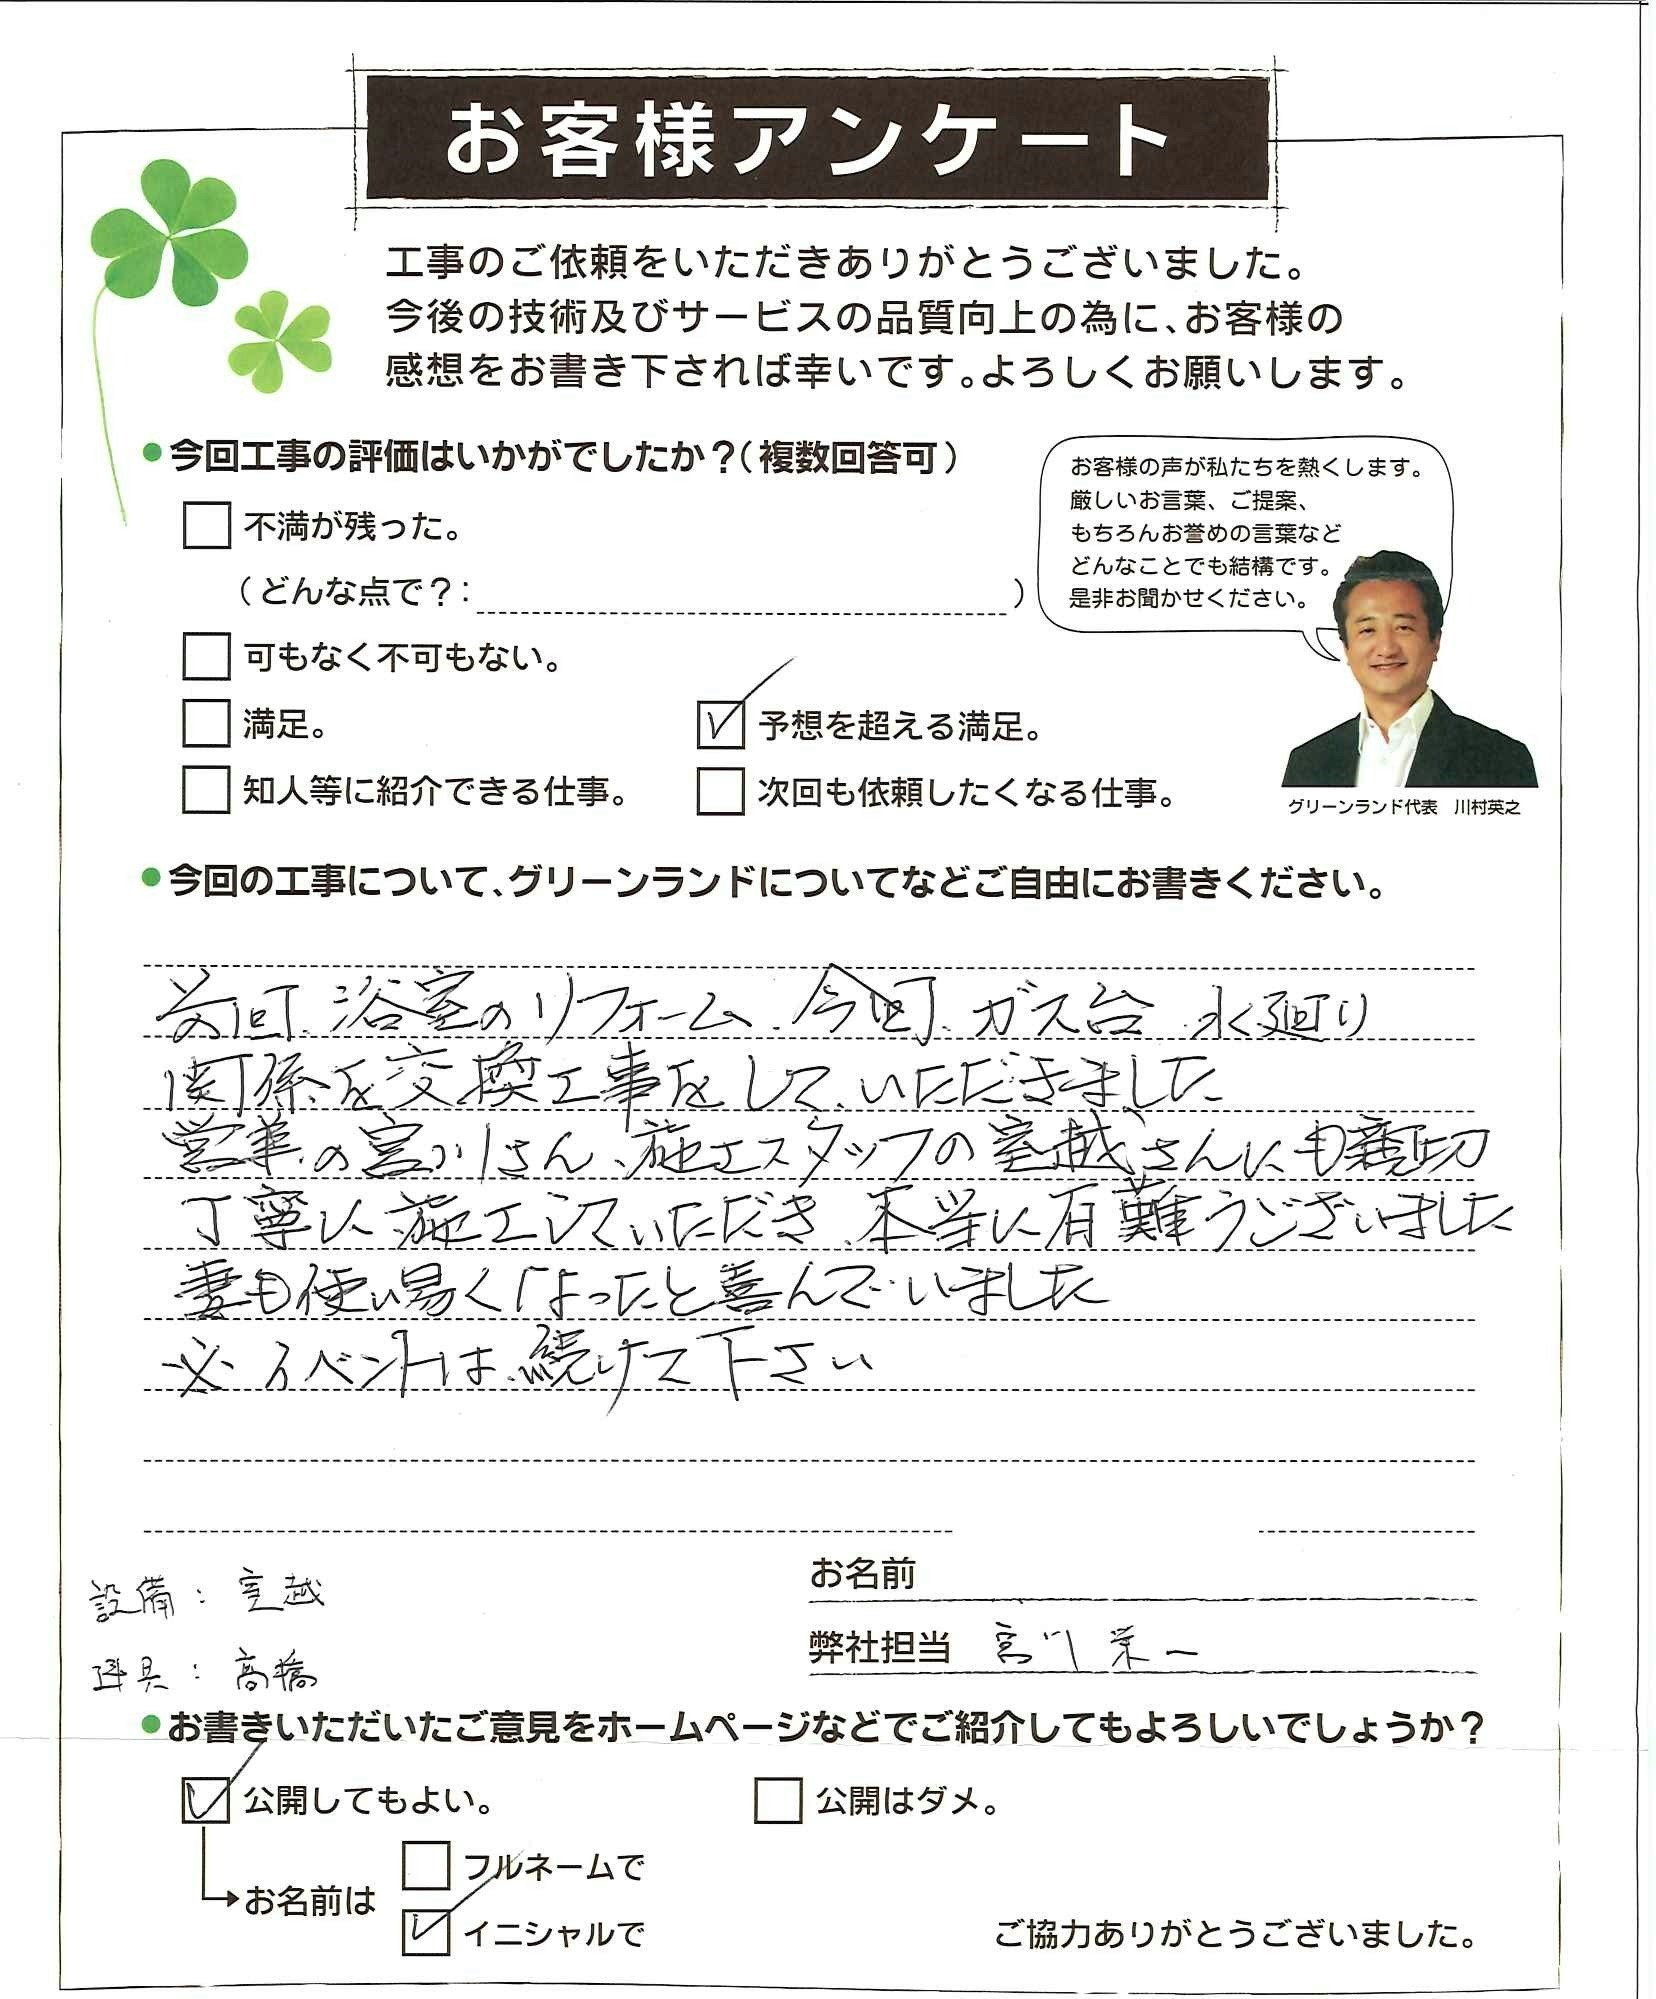 お客様アンケート
工事のご依頼をいただきありがとうございました。
今後の技術及びサービスの品質向上の為に、お客様の
感想をお書き下されば幸いです。よろしくお願いします。
●今回工事の評価はいかがでしたか?(複数回答可)
不満が残った。
(どんな点で?: )
可もなく不可もない。
満足。
予想を超える満足。
知人等に紹介できる仕事。
次回も依頼したくなる仕事。
お客様の声が私たちを熱くします。
厳しいお言葉、ご提案、
もちろんお誉めの言葉など
どんなことでも結構です。
是非お聞かせください。
グリーンランド代表 川村英之
●今回の工事について、グリーンランドについてなどご自由にお書きください。
前回、浴室のリフォーム、今回、ガス台、水廻り
関係を交換工事をして、いただきました
営業の宮川さん、施工スタッフの室越さんにも親切
丁寧に施工していただき、本当に有難うございました
妻も使い易くなったと喜んでいました
※ イベントは、続けて下さい
設備:室越
建具:高橋
お名前
弊社担当 宮川 栄一
●お書きいただいたご意見をホームページなどでご紹介してもよろしいでしょうか?
公開してもよい。
公開はダメ。
お名前は
フルネームで
イニシャルで
ご協力ありがとうございました。